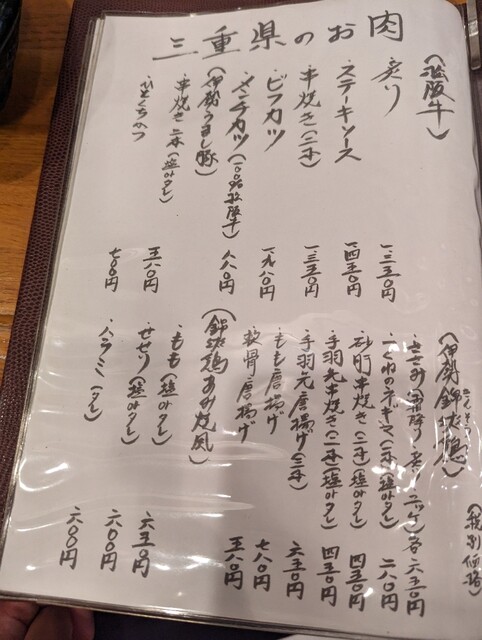 三重県のお肉
(松阪牛)
・炙り 一三五〇円
・ステーキソース 一四五〇円
・串焼き(二本) 一三五〇円
・ビフカツ 一九八〇円
・メンチカツ(一〇〇%松阪牛) 八八〇円
(伊勢うまし豚)
・串焼き二本(塩orタレ) 五八〇円
・ひとくちかつ 七〇〇円
(伊勢錦爽鶏)
(税別価格)
・ささみ 各六五〇円
・つくねのネギマ(二本)(塩orタレ) 二八〇円
・砂肝串焼き(二本)(塩orタレ) 四五〇円
・手羽先串焼き(二本)(塩orタレ) 四五〇円
・手羽元唐揚げ(三本) 六五〇円
・もも唐揚げ 七八〇円
・軟骨唐揚げ 五八〇円
(錦爽鶏あみ焼風)
・もも(塩orタレ) 六五〇円
・せせり(塩orタレ) 六〇〇円
・ハラミ(タレ) 六〇〇円